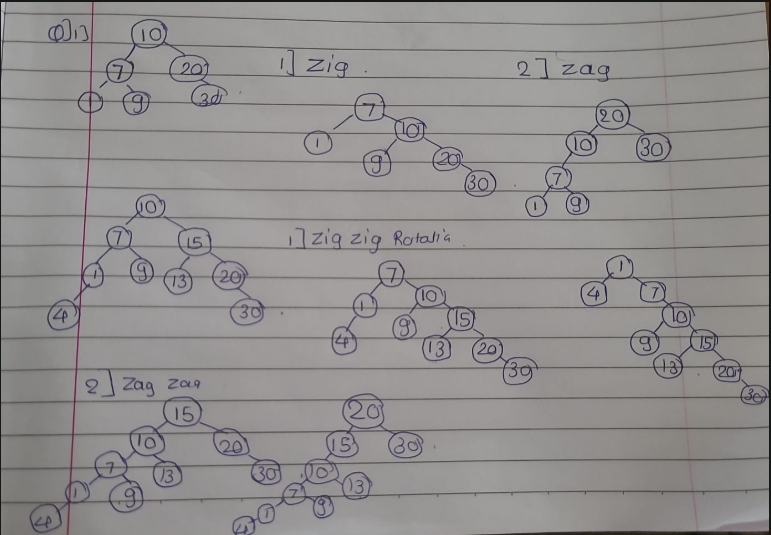 Q]1]
10
7 20
1 9 30
1] zig.
7
1 10
9 20
30
2] zag
20
10 30
7
1 9
10
7 15
1 9 13 20
4 30
1] zig zig Rotatia.
7
1 10
4 9 15
13 20
30
1
4 7
10
9 15
13 20
30
2] zag zag
15
10 20
7 13 30
1 9
4
20
15 30
10 13
7 9
1
4